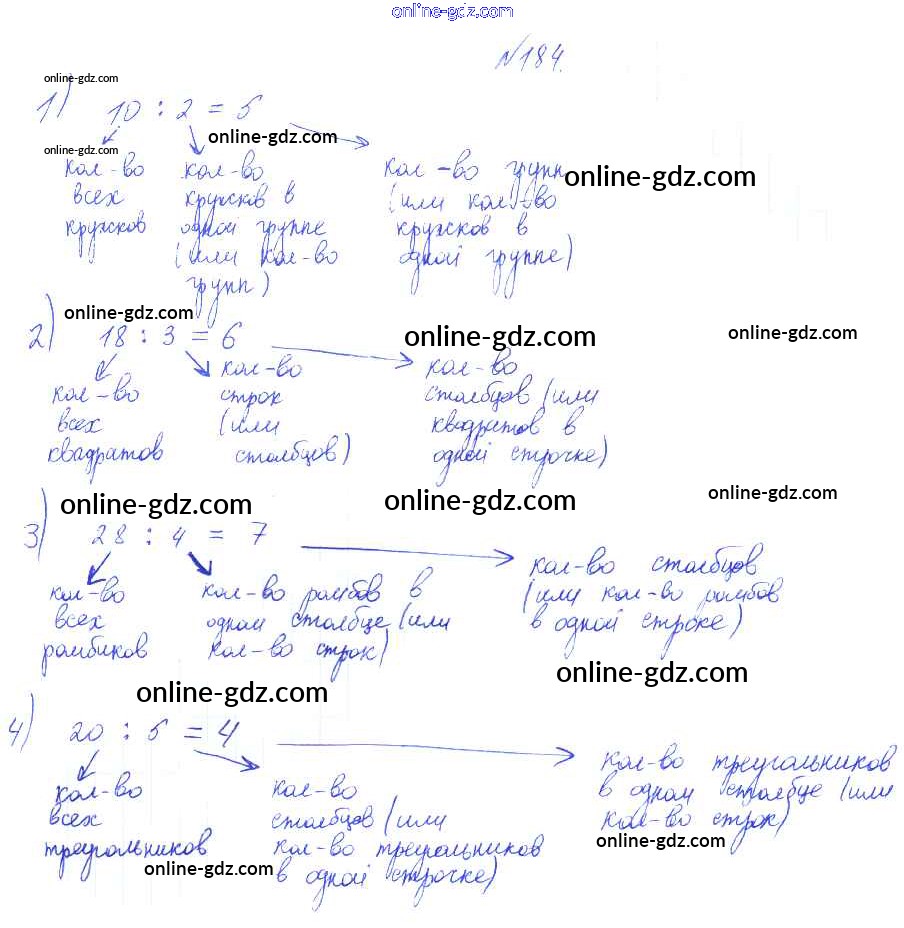 online-gdz.com
№184.
online-gdz.com
1) 10 : 2 = 5
online-gdz.com
online-gdz.com
кол-во всех кружков
кол-во кружков в одной группе (или кол-во групп)
кол-во групп (или кол-во кружков в одной группе)
online-gdz.com
online-gdz.com
2) 18 : 3 = 6
online-gdz.com
online-gdz.com
кол-во
всех
квадратов
кол-во
строк
(или
столбцов)
кол-во
столбцов (или
квадратов в
одной строчке)
online-gdz.com
online-gdz.com
online-gdz.com
3) 28 : 4 = 7
кол-во
всех
ромбиков
кол-во ромбов в
одном столбце (или
кол-во строк)
кол-во столбцов
(или кол-во ромбов
в одной строке)
online-gdz.com
online-gdz.com
4) 20 : 5 = 4
кол-во
всех
треугольников
кол-во
столбцов (или
кол-во треугольников
в одной строчке)
кол-во треугольников
в одном столбце (или
кол-во строк)
online-gdz.com
online-gdz.com